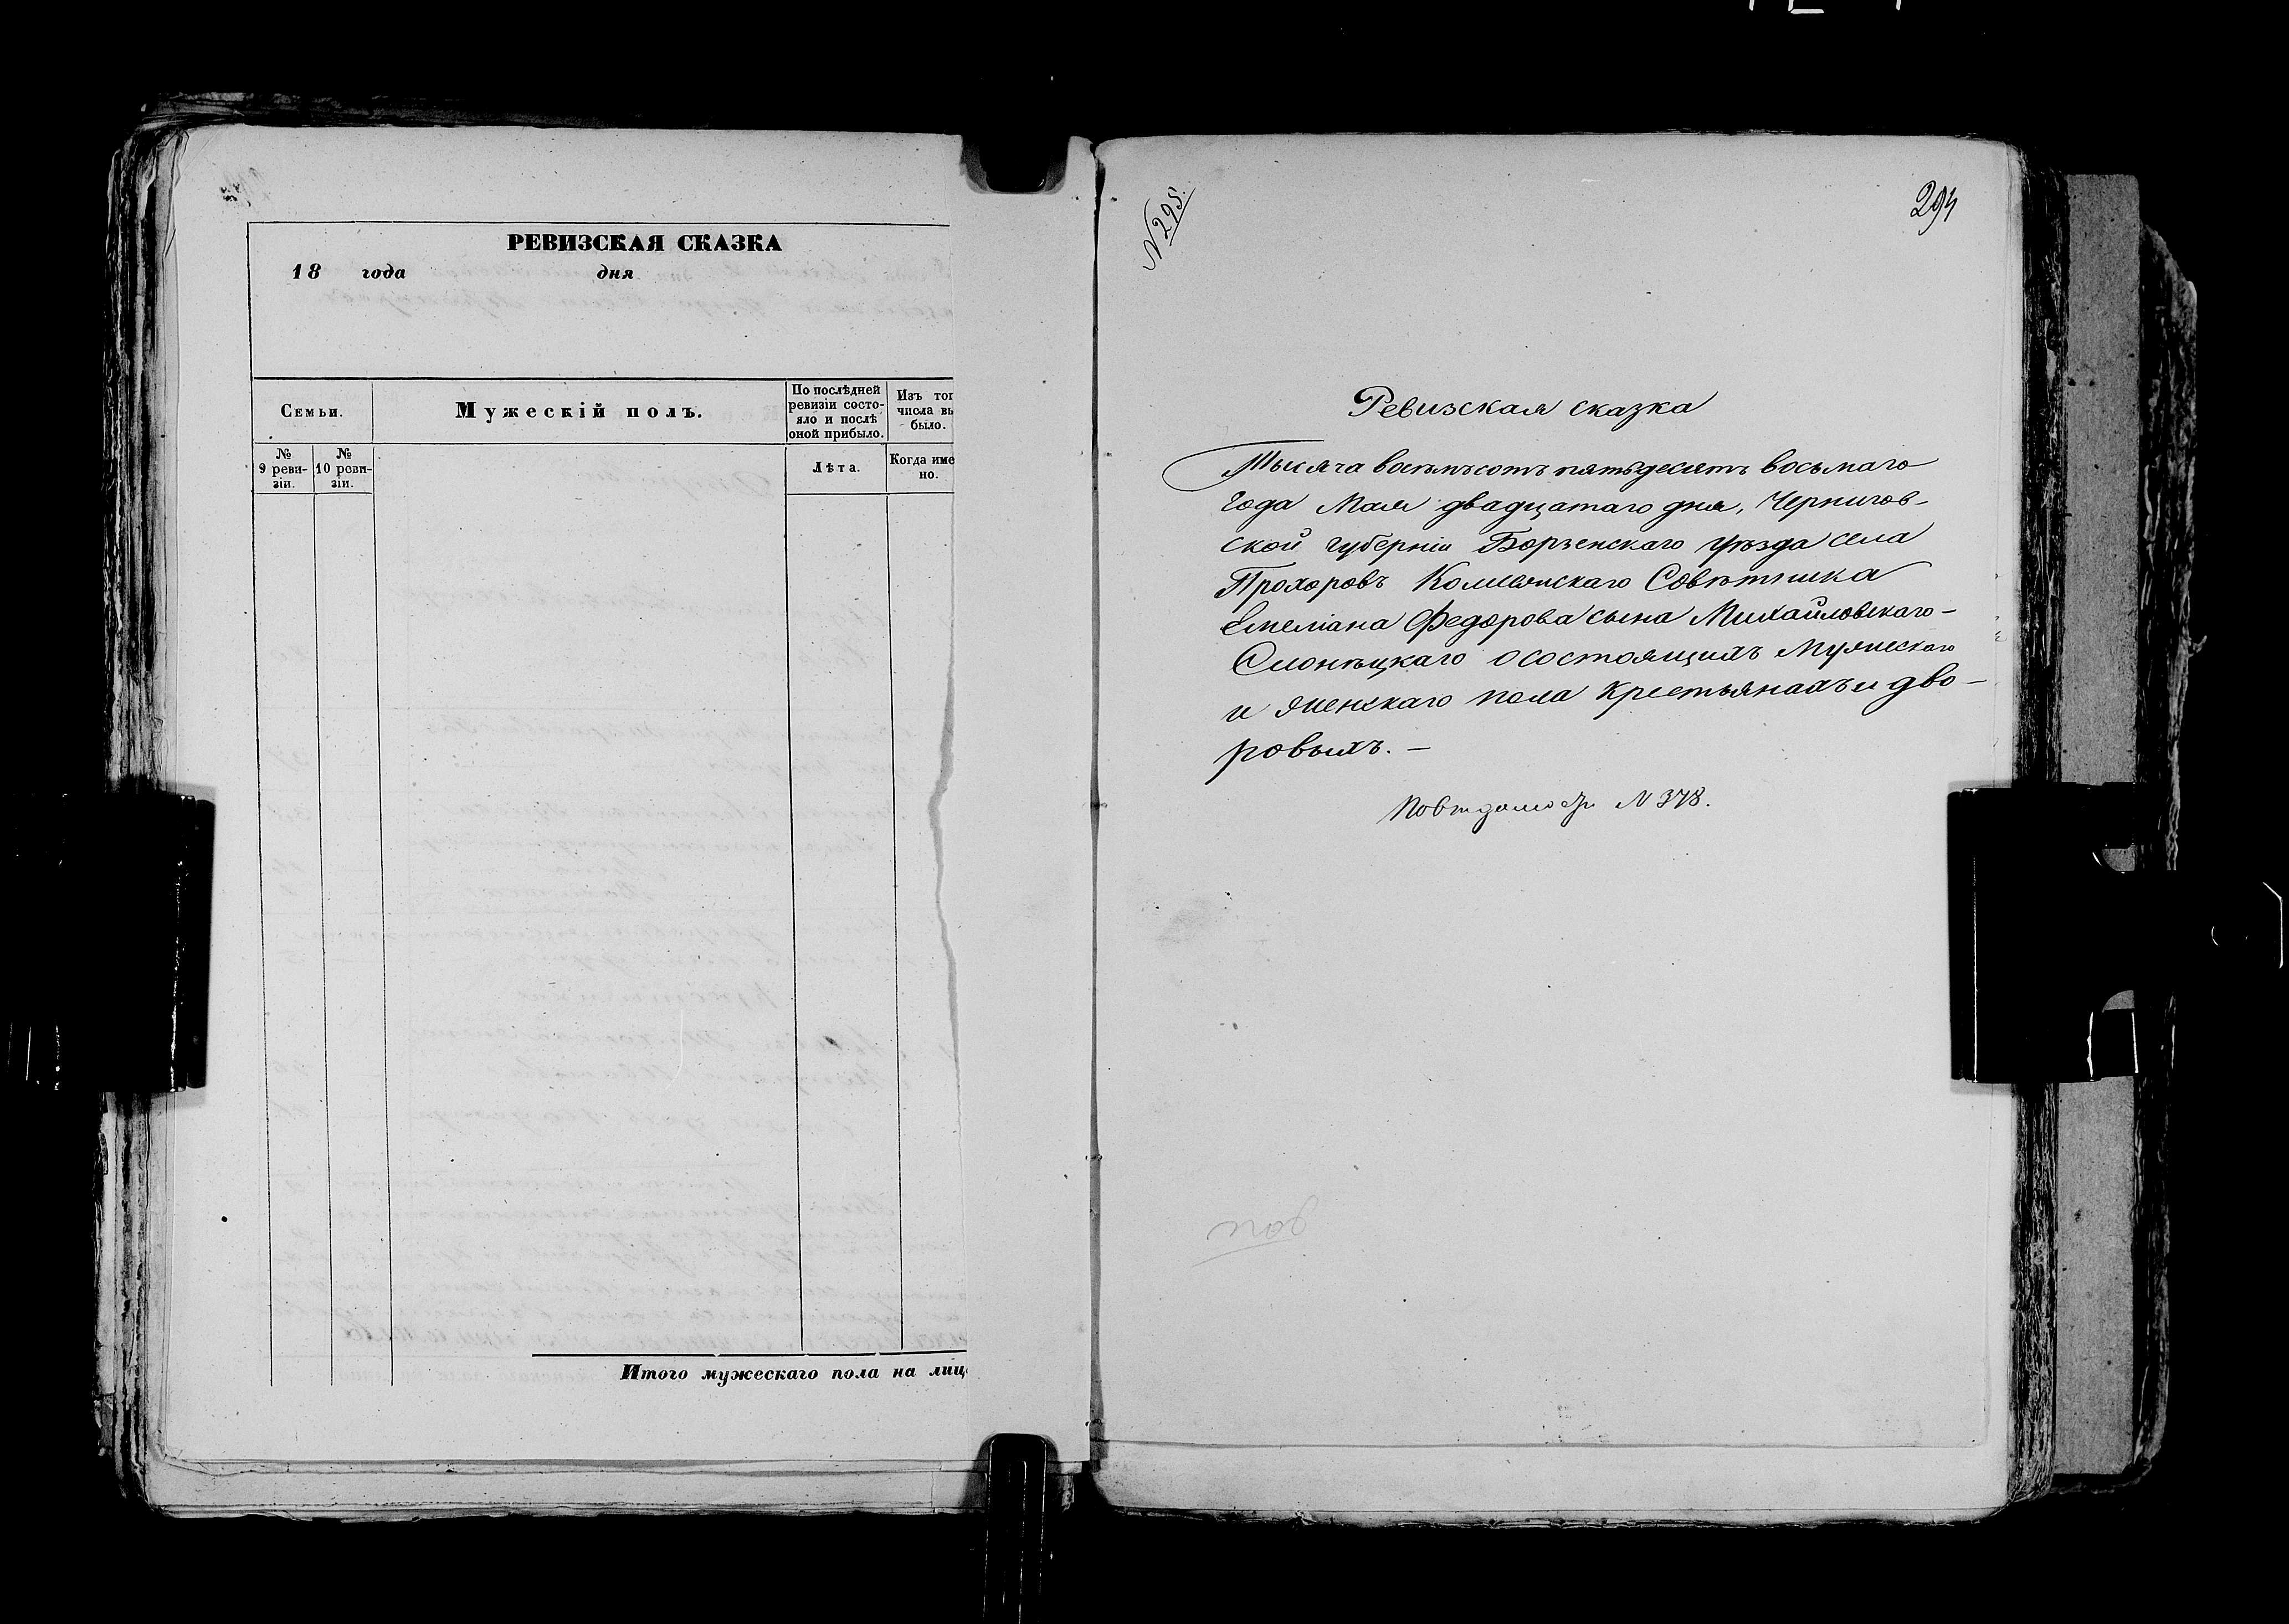 РЕВИЗСКАЯ СКАЗКА
18 года дня
Семьи.
Мужескій полъ.
По послѣдней
ревизіи состо-
яло и послѣ
оной прибыло.
Изъ тог
числа вы
было.
№
9 реви-
зіи.
№
10 реви-
зіи.
Лѣта.
Когда име
но.
Итого мужескаго пола на лиц
N 295.
294
Ревизская сказка
Тысяча восемьсотъ пятьдесятъ восьмаго
года Мая двадцатаго дня, Чернигов-
ской губерніи Борзенскаго уѣзда села
Прохоровъ Коллежскаго Совѣтника
Емеліана Федорова сына Михайловскаго-
о состоящихъ Мужескаго
и женскаго пола крестьянахъ и дво-
ровыхъ. —
N 378.